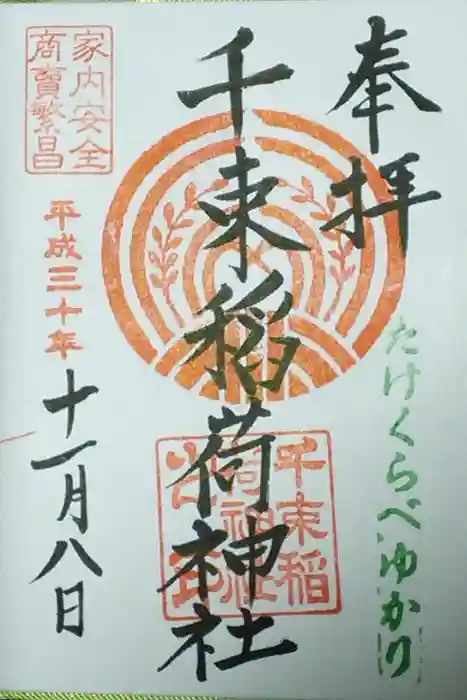 奉拝
たけくらべゆかり
千束稲荷神社
千束稲
荷神社
家内安全
商賣繁昌
平成三十年
十一月八日